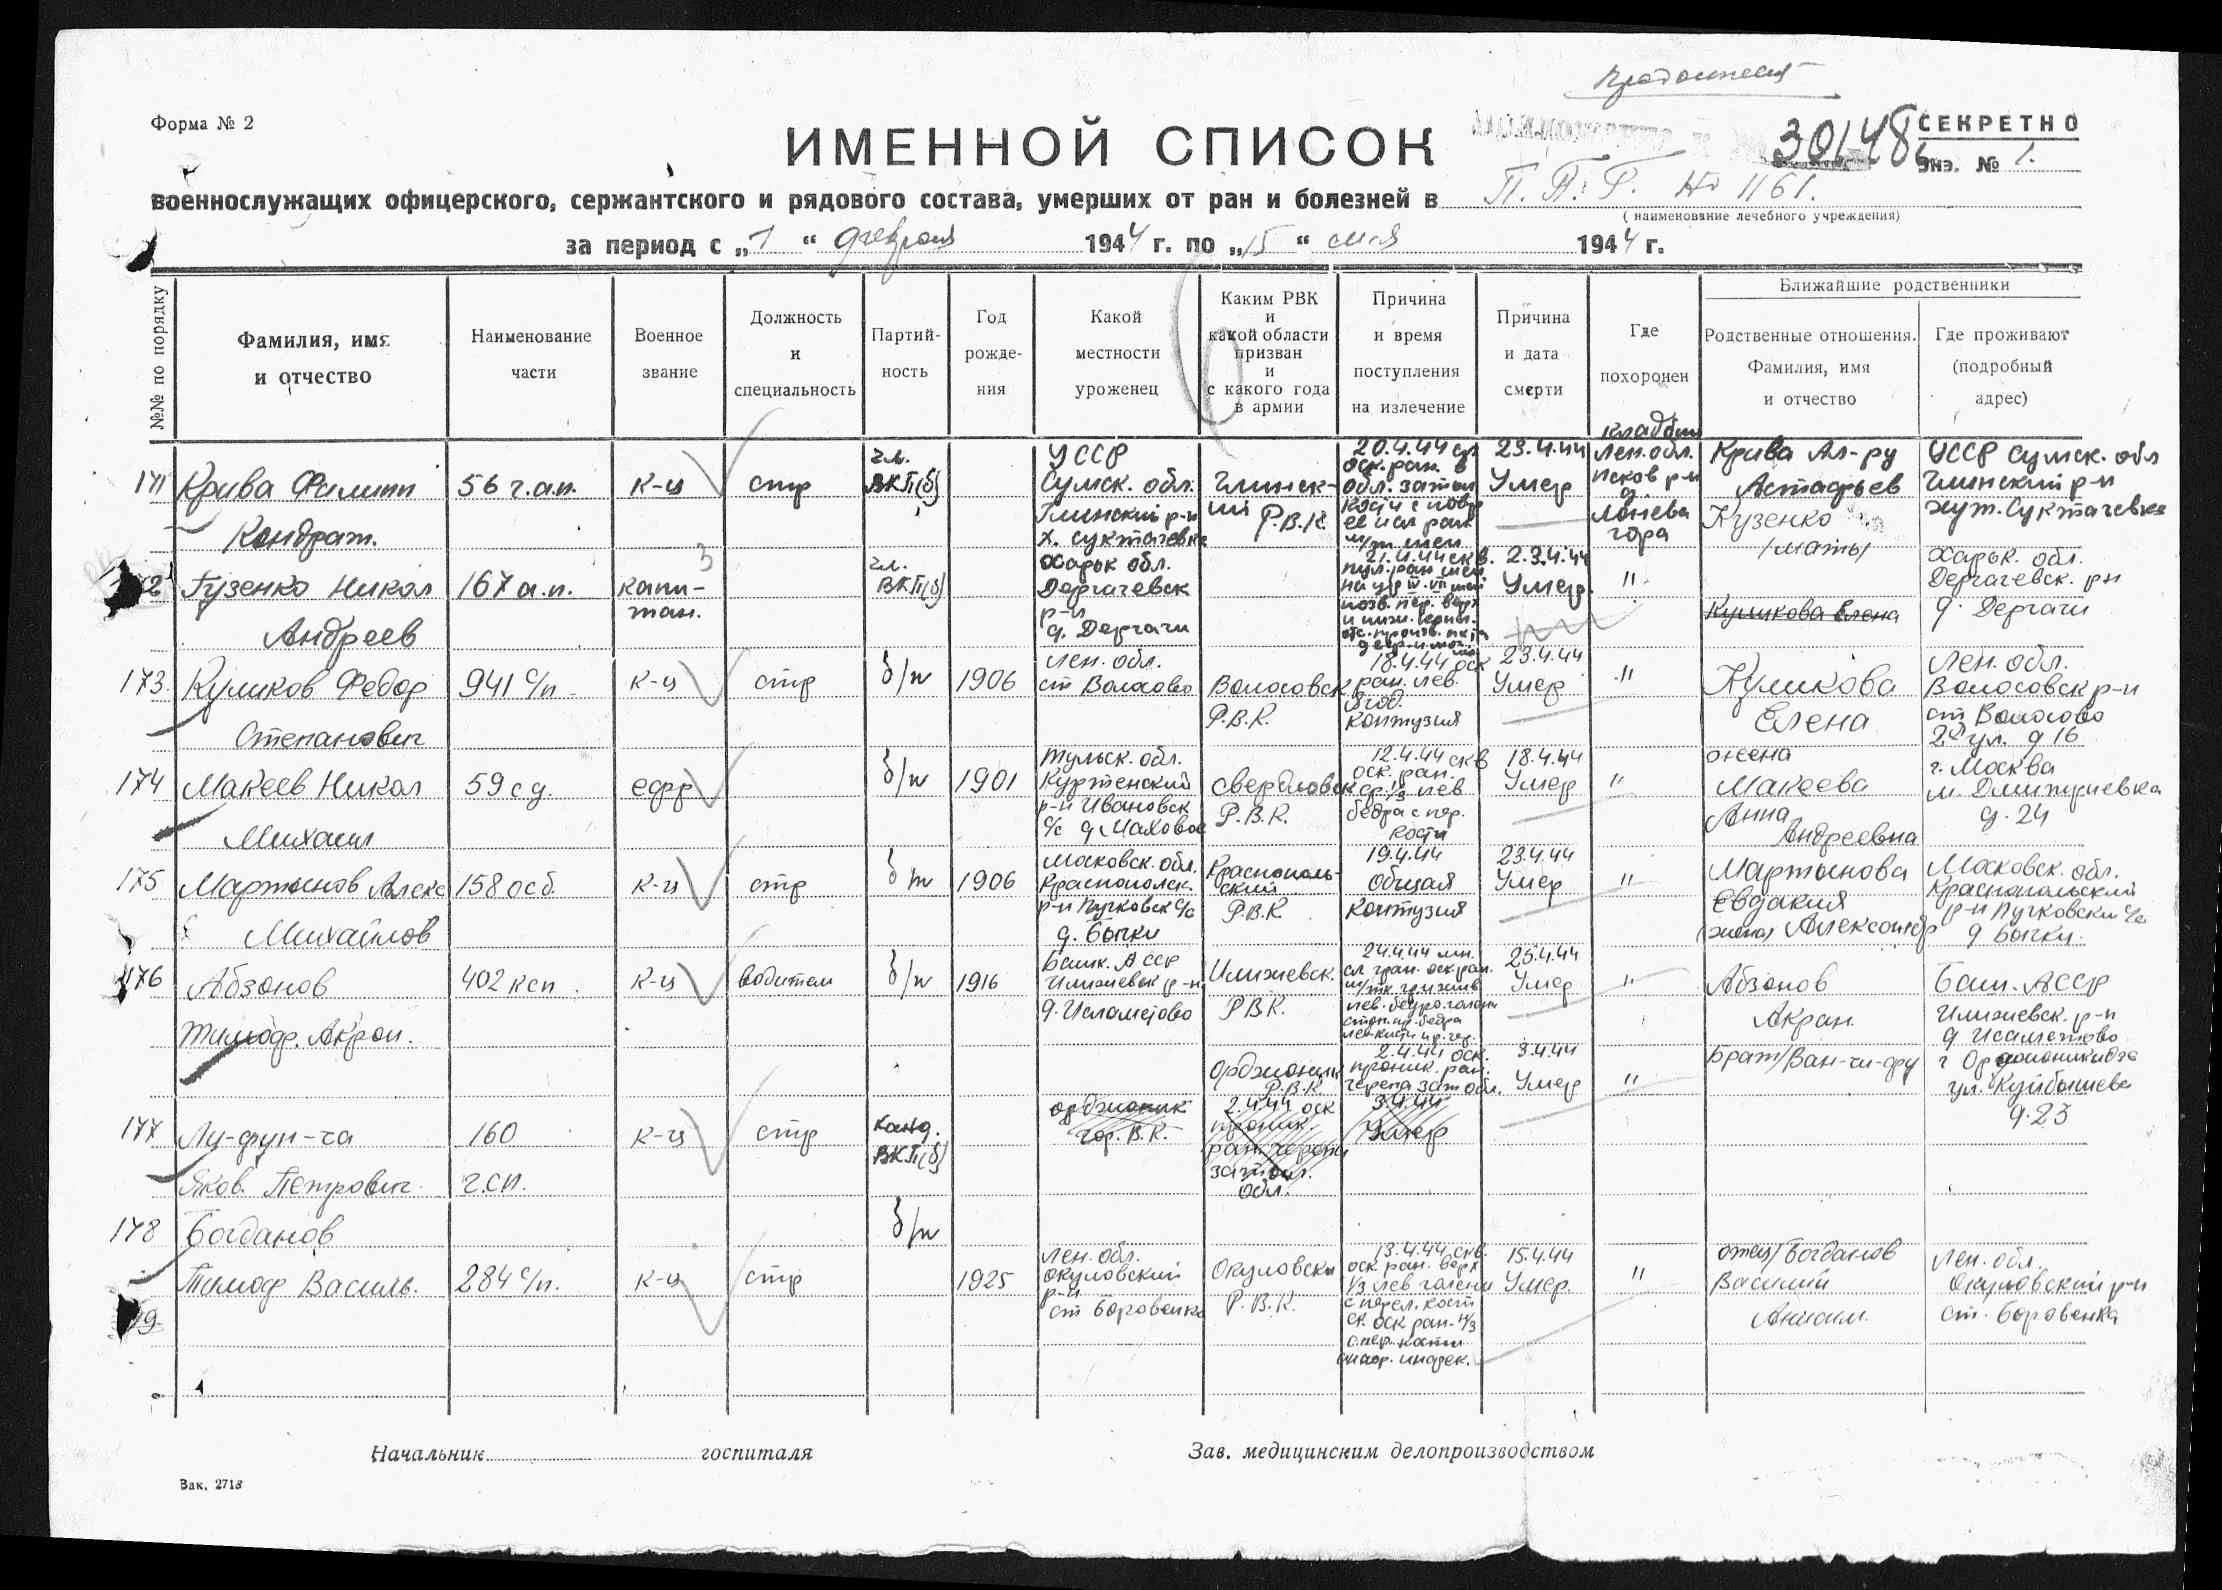 Форма № 2
ИМЕННОЙ СПИСОК
30148
СЕКРЕТНО
Экз. № 1.
военнослужащих офицерского, сержантского и рядового состава, умерших от ран и болезней в П.П.Г. № 1161.
(наименование лечебного учреждения)
за период с „1“ февраля 1944 г. по „15“ мая 1944 г.
№№ по порядку
Фамилия, имя и отчество
Наименование части
Военное звание
Должность и специальность
Партий-ность
Год рожде-ния
Какой местности уроженец
Каким РВК и какой области призван и с какого года в армии
Причина и время поступления на излечение
Причина и дата смерти
Где похоронен
Ближайшие родственники
Родственные отношения. Фамилия, имя и отчество
Где проживают (подробный адрес)
171 Крива Филипп Кондрат.
56 г.а.п.
к-ц
стр
чл. ВКП(б)
УССР Сумск. обл. Глинский р-н х. Суктачевка
Глинск-ий Р.В.К.
20.4.44 оск. ран. в обл. затыл кости с повр
23.4.44 Умер
кладбищ Лен. обл. Псков р-н д. Лонева гора
Крива Ал-ру Астафьев
УССР Сумск. обл Глинский р-н хут. Суктачевка
Гузенко Никол Андреев
167 а.п.
капи-тан.
чл. ВКП(б)
Харьк обл. Дергачевск р-н д. Дергачи
21.4.44 скв. пул. ран шеи
23.4.44 Умер.
"
Гузенко /мать/
Куликова Елена
Харьк. обл. Дергачевск. рн д. Дергачи
173. Куликов Федор Степанович
941 с/п
к-ц
стр
б/п
1906
Лен. обл. ст Волосово
Волосовск Р.В.К.
18.4.44 оск ран. лев. ягод. контузия
23.4.44 Умер
"
Куликова Елена
Лен. обл. Волосовск р-н ст Волосово 2я ул. д 16
174 Макеев Никол Михаил
59 с д.
ефр
б/п
1901
Тульск. обл. Куркенский р-н Ивановск с/с д. Маховое
Свердловск Р.В.К.
12.4.44 скв оск. ран. ср. 1/3 лев бедра с пер. кости
18.4.44 Умер
"
жена Макеева Анна Андреевна
г. Москва д. 24
175 Мартынов Алекс Михайлов
158 осб.
к-ц
стр
б/п
1906
Московск. обл. Краснополск. р-н Пучковск с/с д. Бычки
Краснополь-ский Р.В.К
19.4.44 общая контузия
23.4.44 Умер
"
Мартынова Евдакия (жена) Александр
Московск. обл. Краснопольский р-н Пучковски с/с д Бычки.
176 Абзонов Тимоф. Акрон.
402 ксп
к-ц
водител
б/п
1916
Башк. АССР Илишевск р-н д. Исламетово
Илишевск. РВК.
24.4.44
25.4.44 Умер
"
Абзонов Акран.
Баш. АССР Илишевск. р-н д Исаметово
177 Лу-фун-ча Яков. Петрович.
160 г.сп.
к-ц
стр
канд. ВКП(б)
орджоник гор. В.К.
орджоник Р.В.К
2.4.44 оск проник. ран. черепа затыл. обл.
2.4.44 оск. проник. ран. черепа зат обл.
3.4.44 Умер
3.4.44 Умер
"
Брат/Ван-чи-фу
г Орджоникидзе ул. Куйбышева д. 23
178 Богданов Тимоф Василь.
284 с/п.
к-ц
стр
б/п
1925
Лен. обл. Окуловский р-н ст Боровенка
Окуловски Р.В.К.
13.4.44 скв. оск. ран. верх 1/3 лев голени с перел. кост
15.4.44 Умер.
"
отец/Богданов Василий
Лен. обл. Окуловский р-н ст. Боровенка
Начальник госпиталя
Зав. медицинским делопроизводством
Зак. 2718